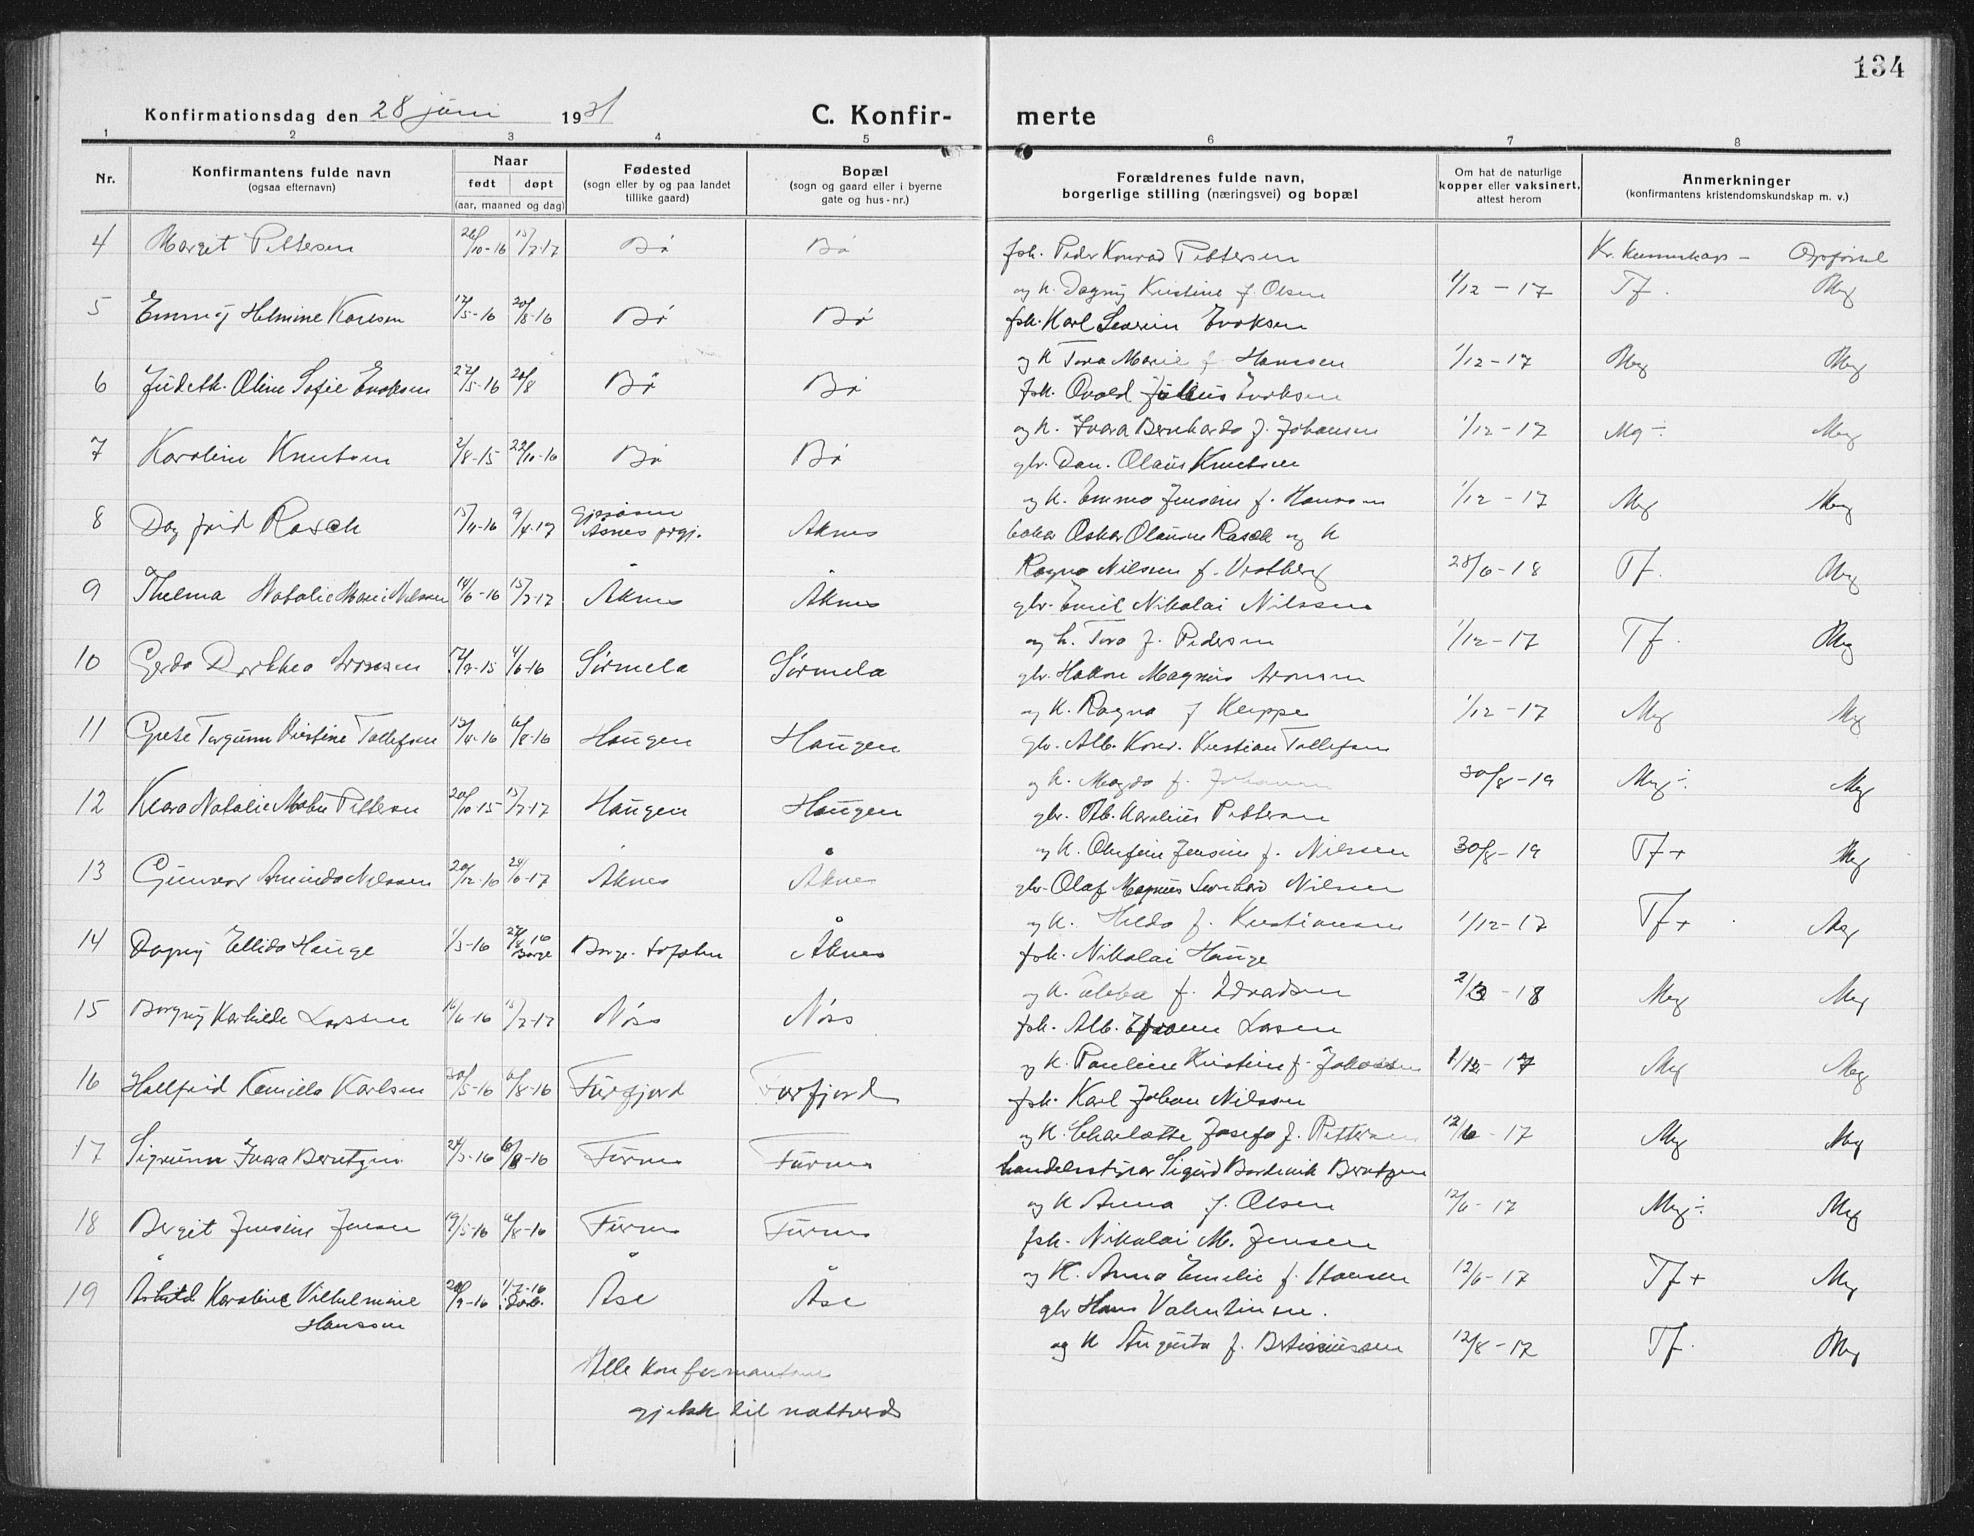 134
Konfirmationsdag den 28 juni 1931
C. Konfir- merte
1 2 3 4 5 6 7 8
Nr.
Konfirmantens fulde navn
(ogsaa efternavn)
Naar
født døpt
(aar, maaned og dag)
Fødested
(sogn eller by og paa landet
tillike gaard)
Bopæl
(sogn og gaard eller i byerne
gate og hus-nr.)
Forældrenes fulde navn,
borgerlige stilling (næringsvei) og bopæl
Om hat de naturlige
kopper eller vaksinert,
attest herom
Anmerkninger
(konfirmantens kristendomskundskap m. v.)
4 Margit Pettersen 26/10-16 15/7-17 Bø Bø fsk. Peder Konrad Pettersen Kr. kunnskap - Opførsel
og h. Dagny Kristine f. Olsen 1/12-17 Tf. Mg
5 Emmy Helmine Karlsen 12/5-16 20/8-16 Bø Bø fsk. Karl Severin
og h Tora Marie f. Hanssen 1/12-17 Mg Mg
6 Judith Oline Sofie 22/5-16 20/8 Bø Bø fsk. Julius
og h. f. Johansen 1/12-17 Mg ÷ Mg
7 Karoline Knutsen 2/8-15 22/10-16 Bø Bø gbr. Dan. Olaus Knutsen
og h. Emma Jensine f. Hanssen 1/12-17 Mg Mg
8 Dagfrid Rasch 15/11-16 9/4-17 Åsnes prgj. Aknes baker Oskar Rasch og h
Ragna Nilsen f. 28/6-18 Tf. Mg
9 Thelma Natalie Marie Nilssen 14/6-16 15/7-17 Åknes Åknes gbr. Emil Nikolai Nilssen
og h. Tora f. Pedersen 1/12-17 Tf. Mg
10 Gerda Dorthea Aronsen 4/6-16 Sørmela Sørmela gbr. Hakon Magnus Aronsen
og h. Ragna f 1/12-17 Mg Mg
11 Grete Torgunn Kristine Tollefsen 6/8-16 Haugen Haugen gbr. Alb. Konr. Kristian Tollefsen
og h. Magda f. Johansen 30/8-19 Mg ÷ Mg
12 Klara Natalie Pettersen 20/10-15 15/7-17 Haugen Haugen gbr. Karelius Pettersen
og h. Jensine f. Nilssen 30/8-19 Tf+ Mg
13 Gunvor Aminda Nilssen 20/12-16 24/6-17 Åknes Åknes gbr. Olaf Magnus Nilssen
og h. Hilda f. Kristiansen 1/12-17 Tf+ Mg
14 Dagny Ellida Hauge 1/5-16 Borge Borge Lofoten Åknes fsk. Nikolai Hauge
og h. f. Edvardsen 2/3-18 Mg Mg
15 Borgny Larssen 15/7-17 Nøss Nøss fsk. Alb. Larsen
og h. Pauline Kristine f. 1/12-17 Mg Mg
16 Hallfrid Kamilla Karlsen 30/5-16 6/8-16 Forfjord Forfjord fsk. Karl Johan Nilssen
og h. Charlotte Josefa f. Pettersen 12/6-17 Mg Mg
17 Sigrunn Ivara Berntzen 24/5-16 6/8-16 Fornes Fornes handelsstyrer Sigurd Berntzen
og h Anna f. Olsen 12/6-17 Mg ÷ Mg
18 Bergit Jensine Jensen 19/5-16 6/8-16 Fornes Fornes fsk. Nikolai M. Jensen
og h. Anna Emelie f. Hansen 12/6-17 Tf+ Mg
19 Karoline Vilhelmine Åse Åse gbr Hans
Hanssen
og h Augusta f. 12/8-17 Tf. Mg
Alle konfirmantene
gjekk til nattverd